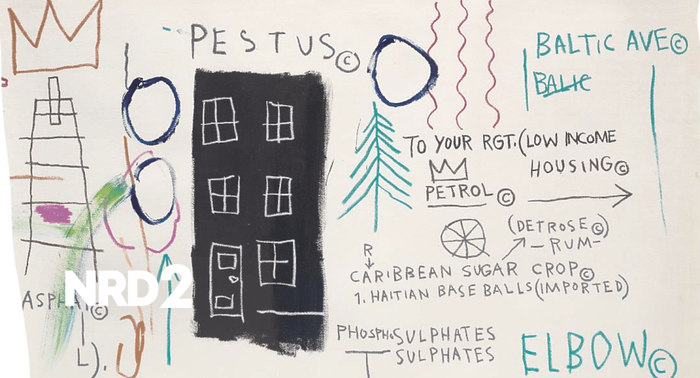 PESTUS©
BALTIC AVE©
BALTIC
TO YOUR RGT. (LOW INCOME
HOUSING©
PETROL ©
(DETROSE©)
-RUM-
R
CARIBBEAN SUGAR CROP©
1. HAITIAN BASE BALLS (IMPORTED)
NRD2
©
L).
SULPHATES
SULPHATES
ELBOW©